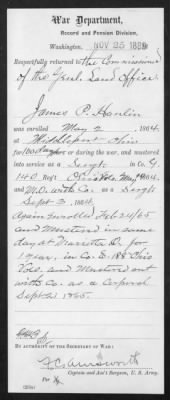 War Department,
Record and Pension Division,
Washington, NOV 25 1889
Respectfully returned to the Commissioner
of the Genl. Land Office.
James P. Hanlin
was enrolled May 2, 1864,
at Middleport Ohio
for 100 days or during the war, and mustered
into service as a Sergt. in Co. G
140 Reg't Ohio Vols. May 1864
and M.O. with Co. as a Sergt
Sept 3 1864
Again enrolled Feb 24/65
and Mustered in same
day at Marietta O. for
1 year, in Co. I. 188 Ohio
Vols. and Mustered out
with Co. as a Corporal
Sept 21 1865.
BY AUTHORITY OF THE SECRETARY OF WAR:
F.C. Ainsworth
Captain and Ass't Surgeon, U. S. Army.
Per